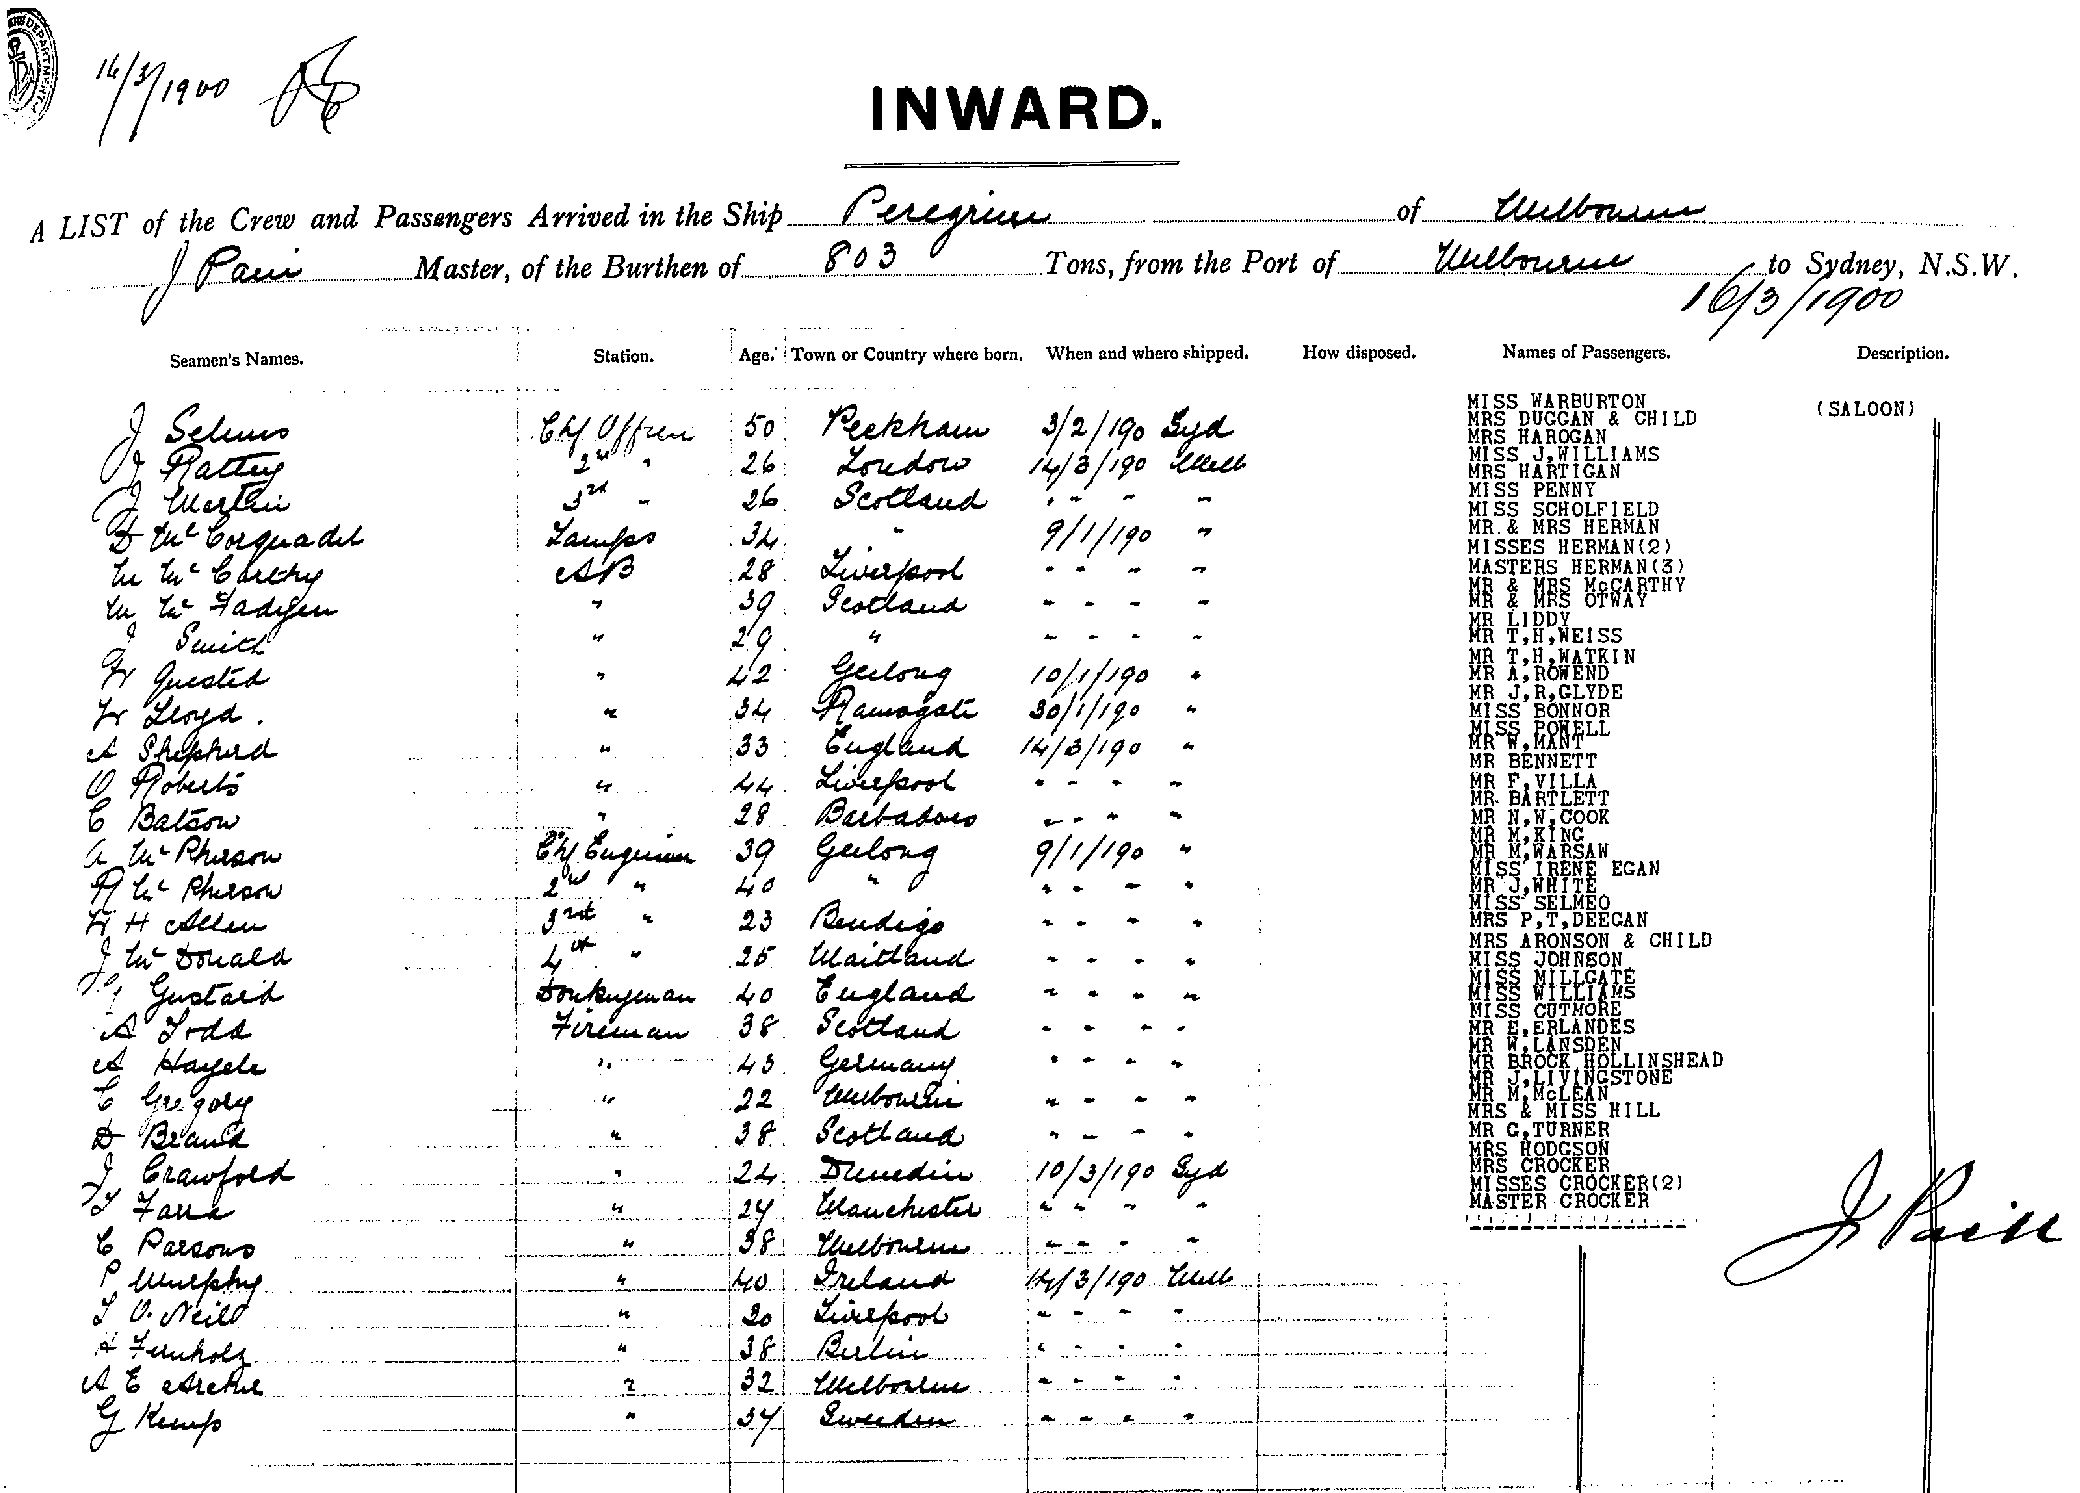 16/3/1900
INWARD.
A LIST of the Crew and Passengers Arrived in the Ship Peregrine of Melbourne
J Pain Master, of the Burthen of 803 Tons, from the Port of Melbourne to Sydney, N.S.W.
16/3/1900
Seamen's Names. Station. Age. Town or Country where born. When and where shipped. How disposed. Names of Passengers. Description.
J Selmes Chf Officer 50 Peckham 3/2/190 Syd
J Rattey 2nd " 26 London 14/3/190 Melb
J Martin 3rd " 26 Scotland " " " "
D McCorquadel Lamps 34 " 9/1/190 "
W McCarthy AB 28 Liverpool " " " "
W McFadyen " 39 Scotland " " " "
J Smith " 29 " " " " "
W Quested " 42 Geelong 10/1/190 "
W Lloyd. " 34 Ramsgate 30/1/190 "
A Shepherd " 33 England 14/3/190 "
O Roberts " 44 Liverpool " " " "
C Batson " 28 Barbadoes " " " "
A McPherson Chf Engineer 39 Geelong 9/1/190 "
R McPherson 2nd " 40 " " " " "
W H Allen 3rd " 23 Bendigo " " " "
J McDonald 4th " 25 Maitland " " " "
Gustard Donkeyman 40 England " " " "
A Todd Fireman 38 Scotland " " " "
A Hagele " 43 Germany " " " "
C Gregory " 22 Melbourne " " " "
D Brand " 38 Scotland " " " "
J Crawford " 24 Dunedin 10/3/190 Syd
T Farra " 24 Manchester " " " "
C Parsons " 38 Melbourne " " " "
P Murphy " 40 Ireland 14/3/190 Melb
T O'Neill " 30 Liverpool " " " "
H Fernholz " 38 Berlin " " " "
A E Archer " 32 Melbourne " " " "
G Kemp " 34 Sweden " " " "
MISS WARBURTON (SALOON)
MRS DUGGAN & CHILD
MRS HAROGAN
MISS J,WILLIAMS
MRS HARTIGAN
MISS PENNY
MISS SCHOLFIELD
MR & MRS HERMAN
MISSES HERMAN(2)
MASTERS HERMAN(3)
MR & MRS McCARTHY
MR & MRS OTWAY
MR LIDDY
MR T,H,WEISS
MR T,H,WATKIN
MR A,ROWEND
MR J,R,GLYDE
MISS BONNOR
MISS POWELL
MR W,MANT
MR BENNETT
MR F,VILLA
MR BARTLETT
MR N,W,COOK
MR M,KING
MR M,WARSAW
MISS IRENE EGAN
MR J,WHITE
MISS SELMEO
MRS P,T,DEEGAN
MRS ARONSON & CHILD
MISS JOHNSON
MISS MILLGATE
MISS WILLIAMS
MISS CUTMORE
MR E,ERLANDES
MR W,LANSDEN
MR BROCK HOLLINSHEAD
MR J,LIVINGSTONE
MR M,McLEAN
MRS & MISS HILL
MR G,TURNER
MRS HODGSON
MRS CROCKER
MISSES CROCKER(2)
MASTER CROCKER
J Pain